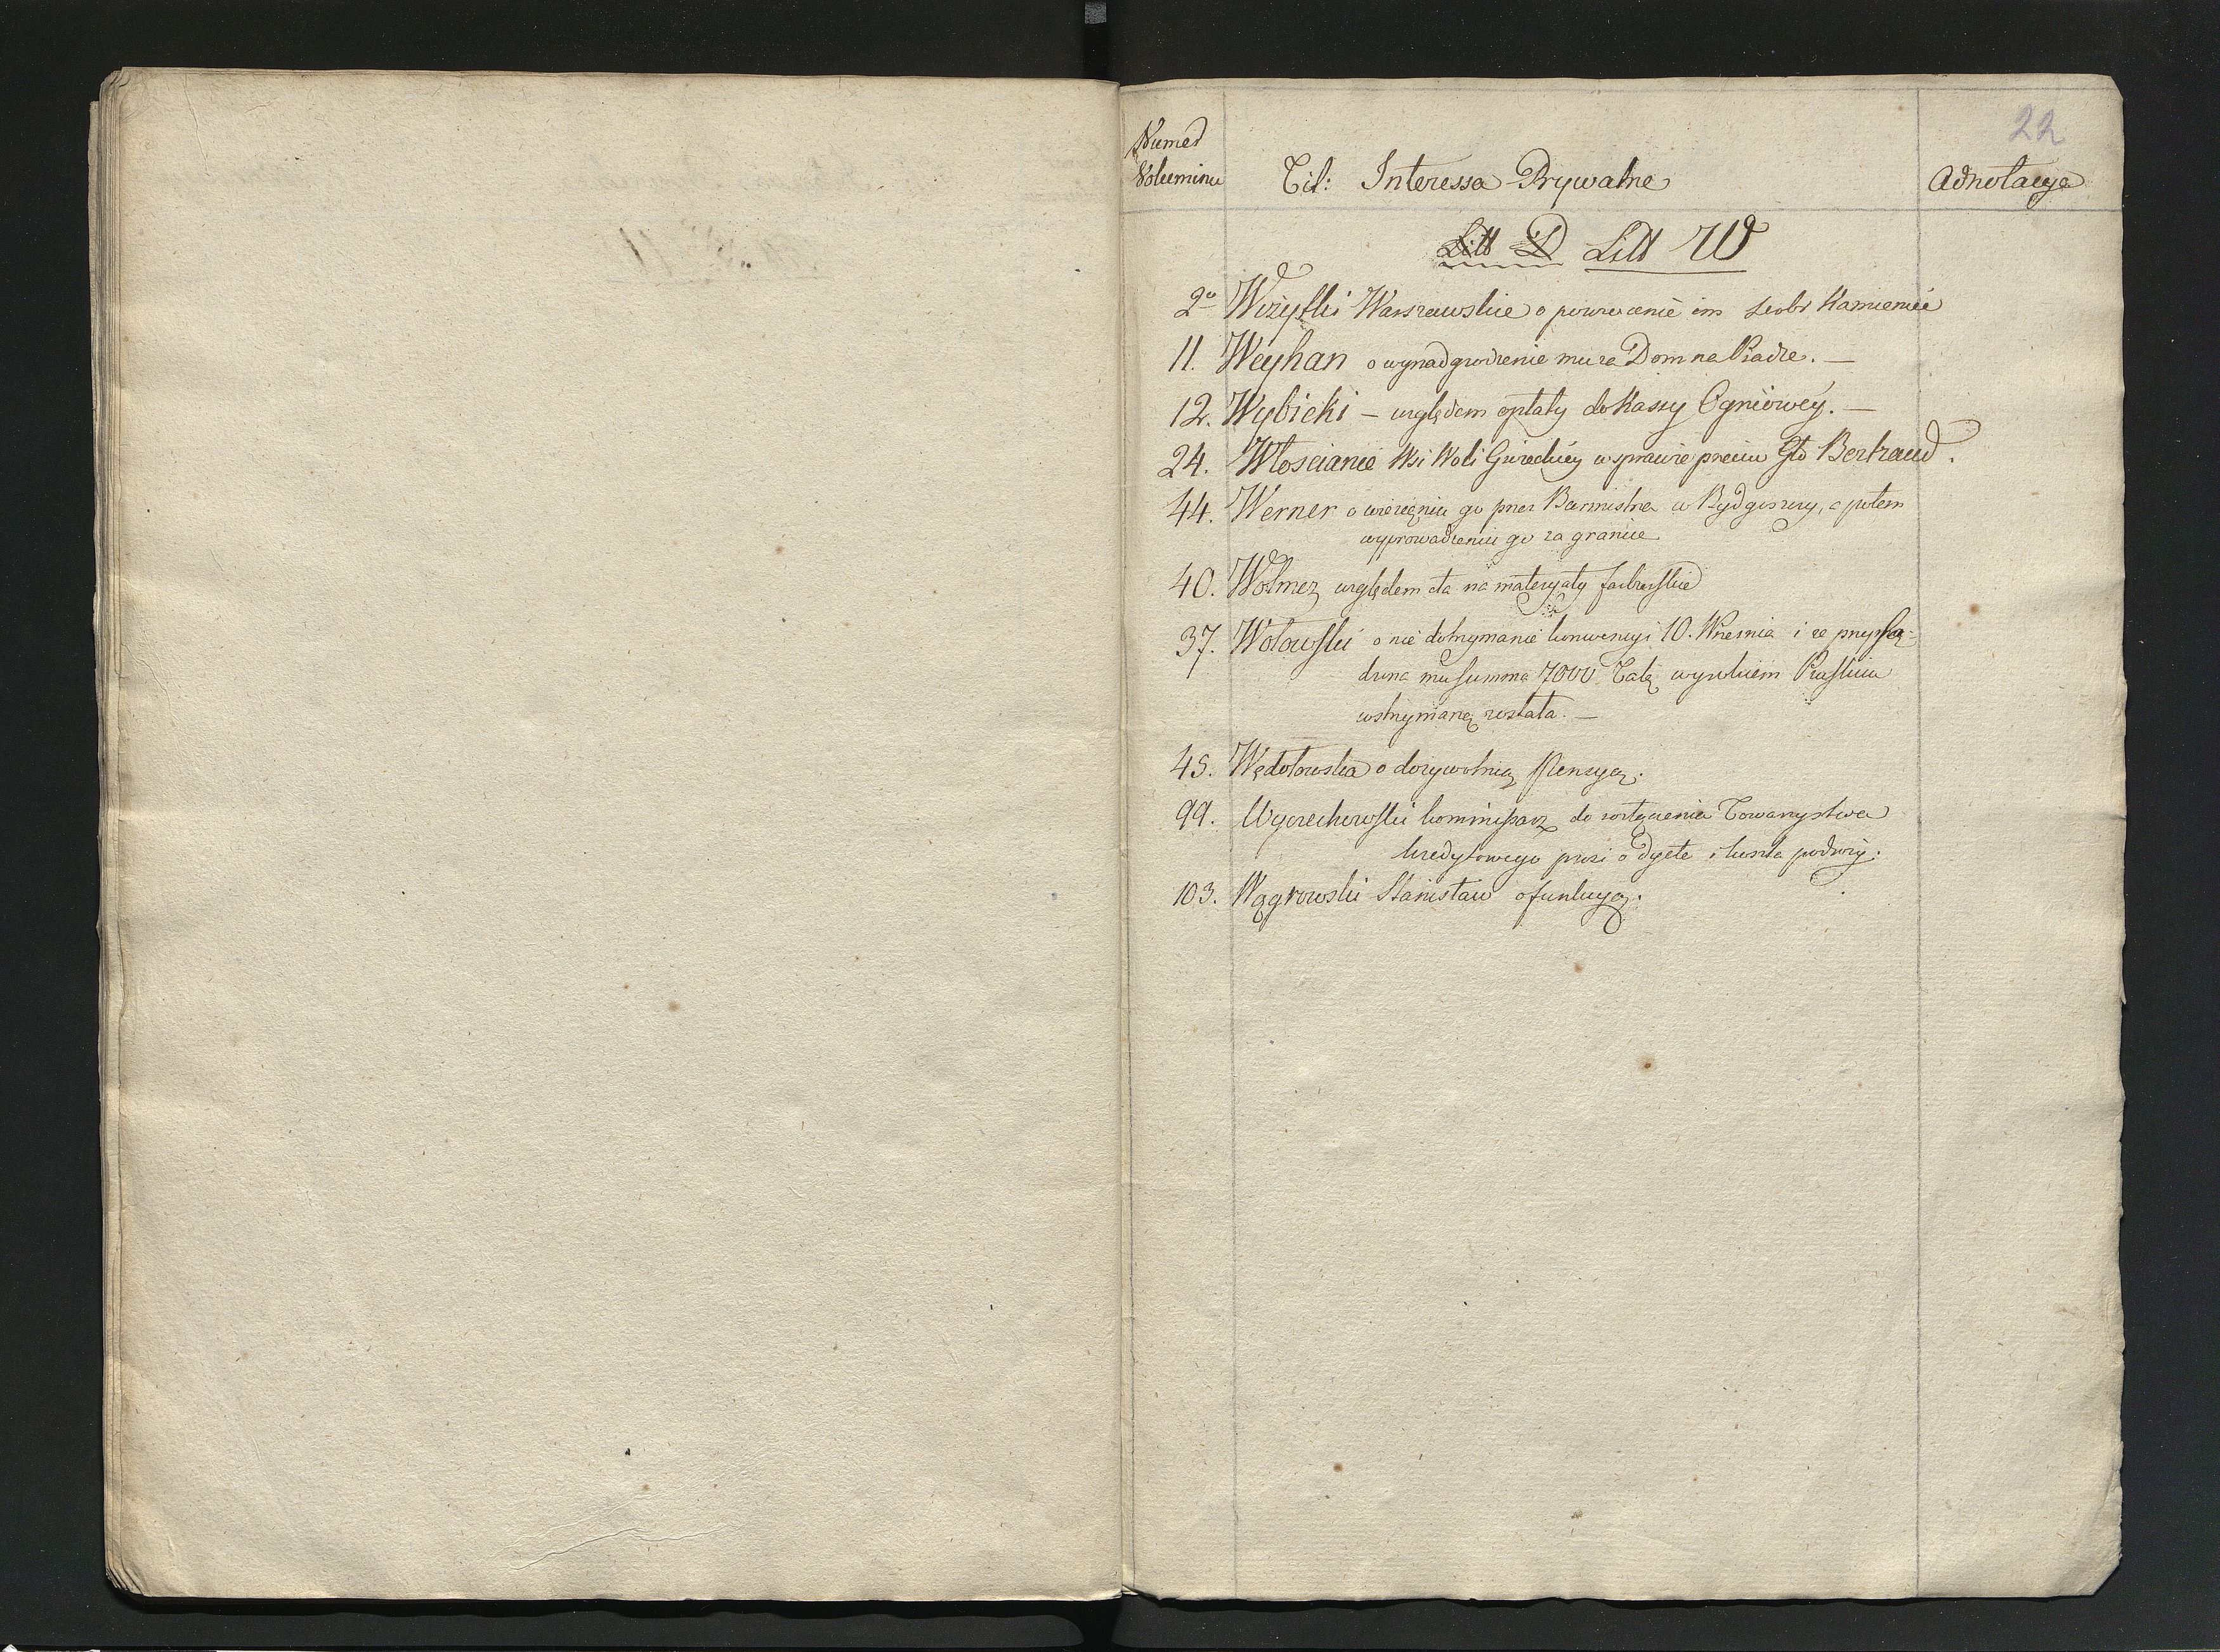 22
Numer
Voluminu
Tit: Interessa Prywatne
Adnotacya
Litt D Litt W
2o Wizytki Warszawskie o powrocenie im dobr Kamieniec
11. Weyhan o wynadgrodzenie mu za Dom na Pradze. —
12. Wybicki — względem opłaty do Kassy Ogniowey. —
24. Włoscianie Wsi Woli w sprawie przeciw Gło Bertrand.
44. Werner o uwięzieniu go przez Burmistrza w Bydgoszczy, a potem
wyprowadzeniu go za granice
40. Wolmer, względem cła na materyały farbierskie
37. Wołowski o nie dotrzymanie konwencyi 10. Wrzesnia i ze przysą-
dzona mu Summa 7000 Tal. wyrokiem Pruskim
wstrzymaną została. —
45. Wędołowska o dozywotnią Pensyą.
99. Wyczechowski kommissarz do rozłączenia Towarzystwa
kredytowego prosi o Dyete i koszta podróży.
103. Wągrowski Stanisław o funkcyą.